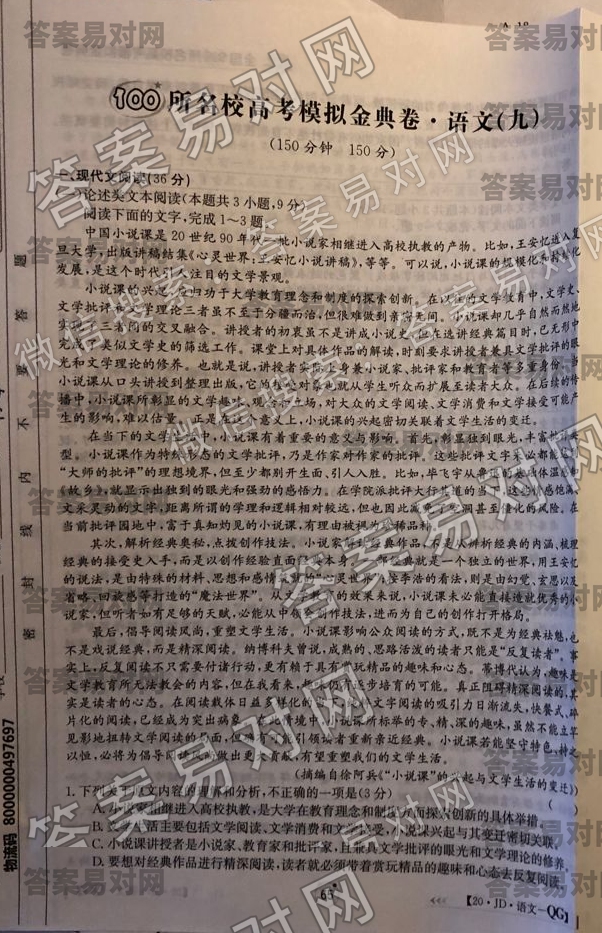 A-18
100所名校高考模拟金典卷·语文(九)
(150分钟 150分)
一、现代文阅读(36分)
论述类文本阅读(本题共3小题,9分)
阅读下面的文字,完成1~3题。
中国小说课是20世纪90年代一批小说家相继进入高校执教的产物。比如,王安忆进入复
旦大学,出版讲稿结集《心灵世界:王安忆小说讲稿》,等等。可以说,小说课的规模化和
发展,是这个时代引人注目的文学景观。
小说课的兴起,应归功于大学教育理念和制度的探索创新。在以往的文学教育中,文学史、
文学批评和文学理论三者虽不至于分疆而治,但很难做到亲密无间。小说课却几乎自然而然地
实现了三者间的交叉融合。讲授者的初衷虽不是讲成小说史,但在选讲经典篇目时,已无形中
完成了类似文学史的筛选工作。课堂上对具体作品的解读,时刻要求讲授者兼具文学批评的眼
光和文学理论的修养。也就是说,讲授者实际上身兼小说家、批评家和教育者等多重身份。当
小说课从口头讲授到整理出版,它的受众对象也就从学生听众而扩展至读者大众。在后续的传
播中,小说课所彰显的文学趣味、观念和立场,对大众的文学阅读、文学消费和文学接受可能产
生的影响,难以估量。正是在这个意义上,小说课的兴起密切关联着文学生活的变迁。
在当下的文学生活中,小说课有着重要的意义与影响。首先,彰显独到眼光,丰富批评类
型。小说课作为特殊形态的文学批评,乃是作家对作家的批评。这些批评文字未必都能达到
“大师的批评”的理想境界,但至少都别开生面,引人入胜。比如,毕飞宇从鲁迅的基础体温
《故乡》,就显示出独到的眼光和强劲的感悟力。在学院派批评大行其道的当下,这些情感饱满、
文采灵动的文字,距离所谓的学理和逻辑相对较远,但也因此减免了空洞甚至僵化的风险。在
当前批评园地中,富于真知灼见的小说课,有理由被视为是稀品种。
其次,解析经典奥秘,点拨创作技法。小说课讲解经典作品,不是从辨析经典的内涵、梳理
经典的接受史入手,而是以创作经验直面文本本身。每一部经典就是一个独立的世界,用王安忆
的说法,是由特殊的材料、思想和感情筑就的“心灵世界”,按李浩的看法,则是由幻觉、玄思以及
省略、回旋感等打造的“魔法世界”。从文学教育的效果来说,小说课未必能直接造就优秀的小
说家,但听者如有足够的天赋,必能从中领会创作技法,进而为自己的创作打开格局。
最后,倡导阅读风尚,重塑文学生活。小说课影响公众阅读的方式,既不是为经典祛魅,也
不是戏说经典,而是精深阅读。纳博科夫曾说,成熟的、思路活泼的读者只能是“反复读者”。事
实上,反复阅读不只需要付诸行动,更有赖于具有赏玩精品的趣味和心态。蒂博代认为,趣味是
文学教育所无法教会的内容,但在我看来,趣味仍有逐步培育的可能。真正阻碍精深阅读的,其
实是读者的心态。在阅读载体日益多样化的当下,文字阅读的吸引力日渐流失,快餐式、碎
片化的阅读,已经成为突出病象。在此语境中,小说课所标举的专、精、深的趣味,虽然不能立竿
见影地扭转文学阅读的局面,但确有可能引领读者重新亲近经典。小说课若能坚守特色,持之
以恒,必将为倡导阅读风尚做出更大贡献,有望重塑我们的文学生活。
(摘编自徐阿兵《“小说课”的兴起与文学生活的变迁》)
1. 下列关于原文内容的理解和分析,不正确的一项是(3分)
A. 小说家相继进入高校执教,是大学在教育理念和制度方面探索创新的具体举措。
B. 文学生活主要包括文学阅读、文学消费和文学接受,小说课兴起与其变迁密切关联。
C. 小说课讲授者是小说家、教育家和批评家,且大都兼具文学批评的眼光和文学理论的修养。
D. 要想对经典作品进行精深阅读,读者就必须带着赏玩精品的趣味和心态去反复阅读。
65
【20·JD·语文—QG】
密封线内不要答题
物流码 8000000497697
答案易对网
微信搜索